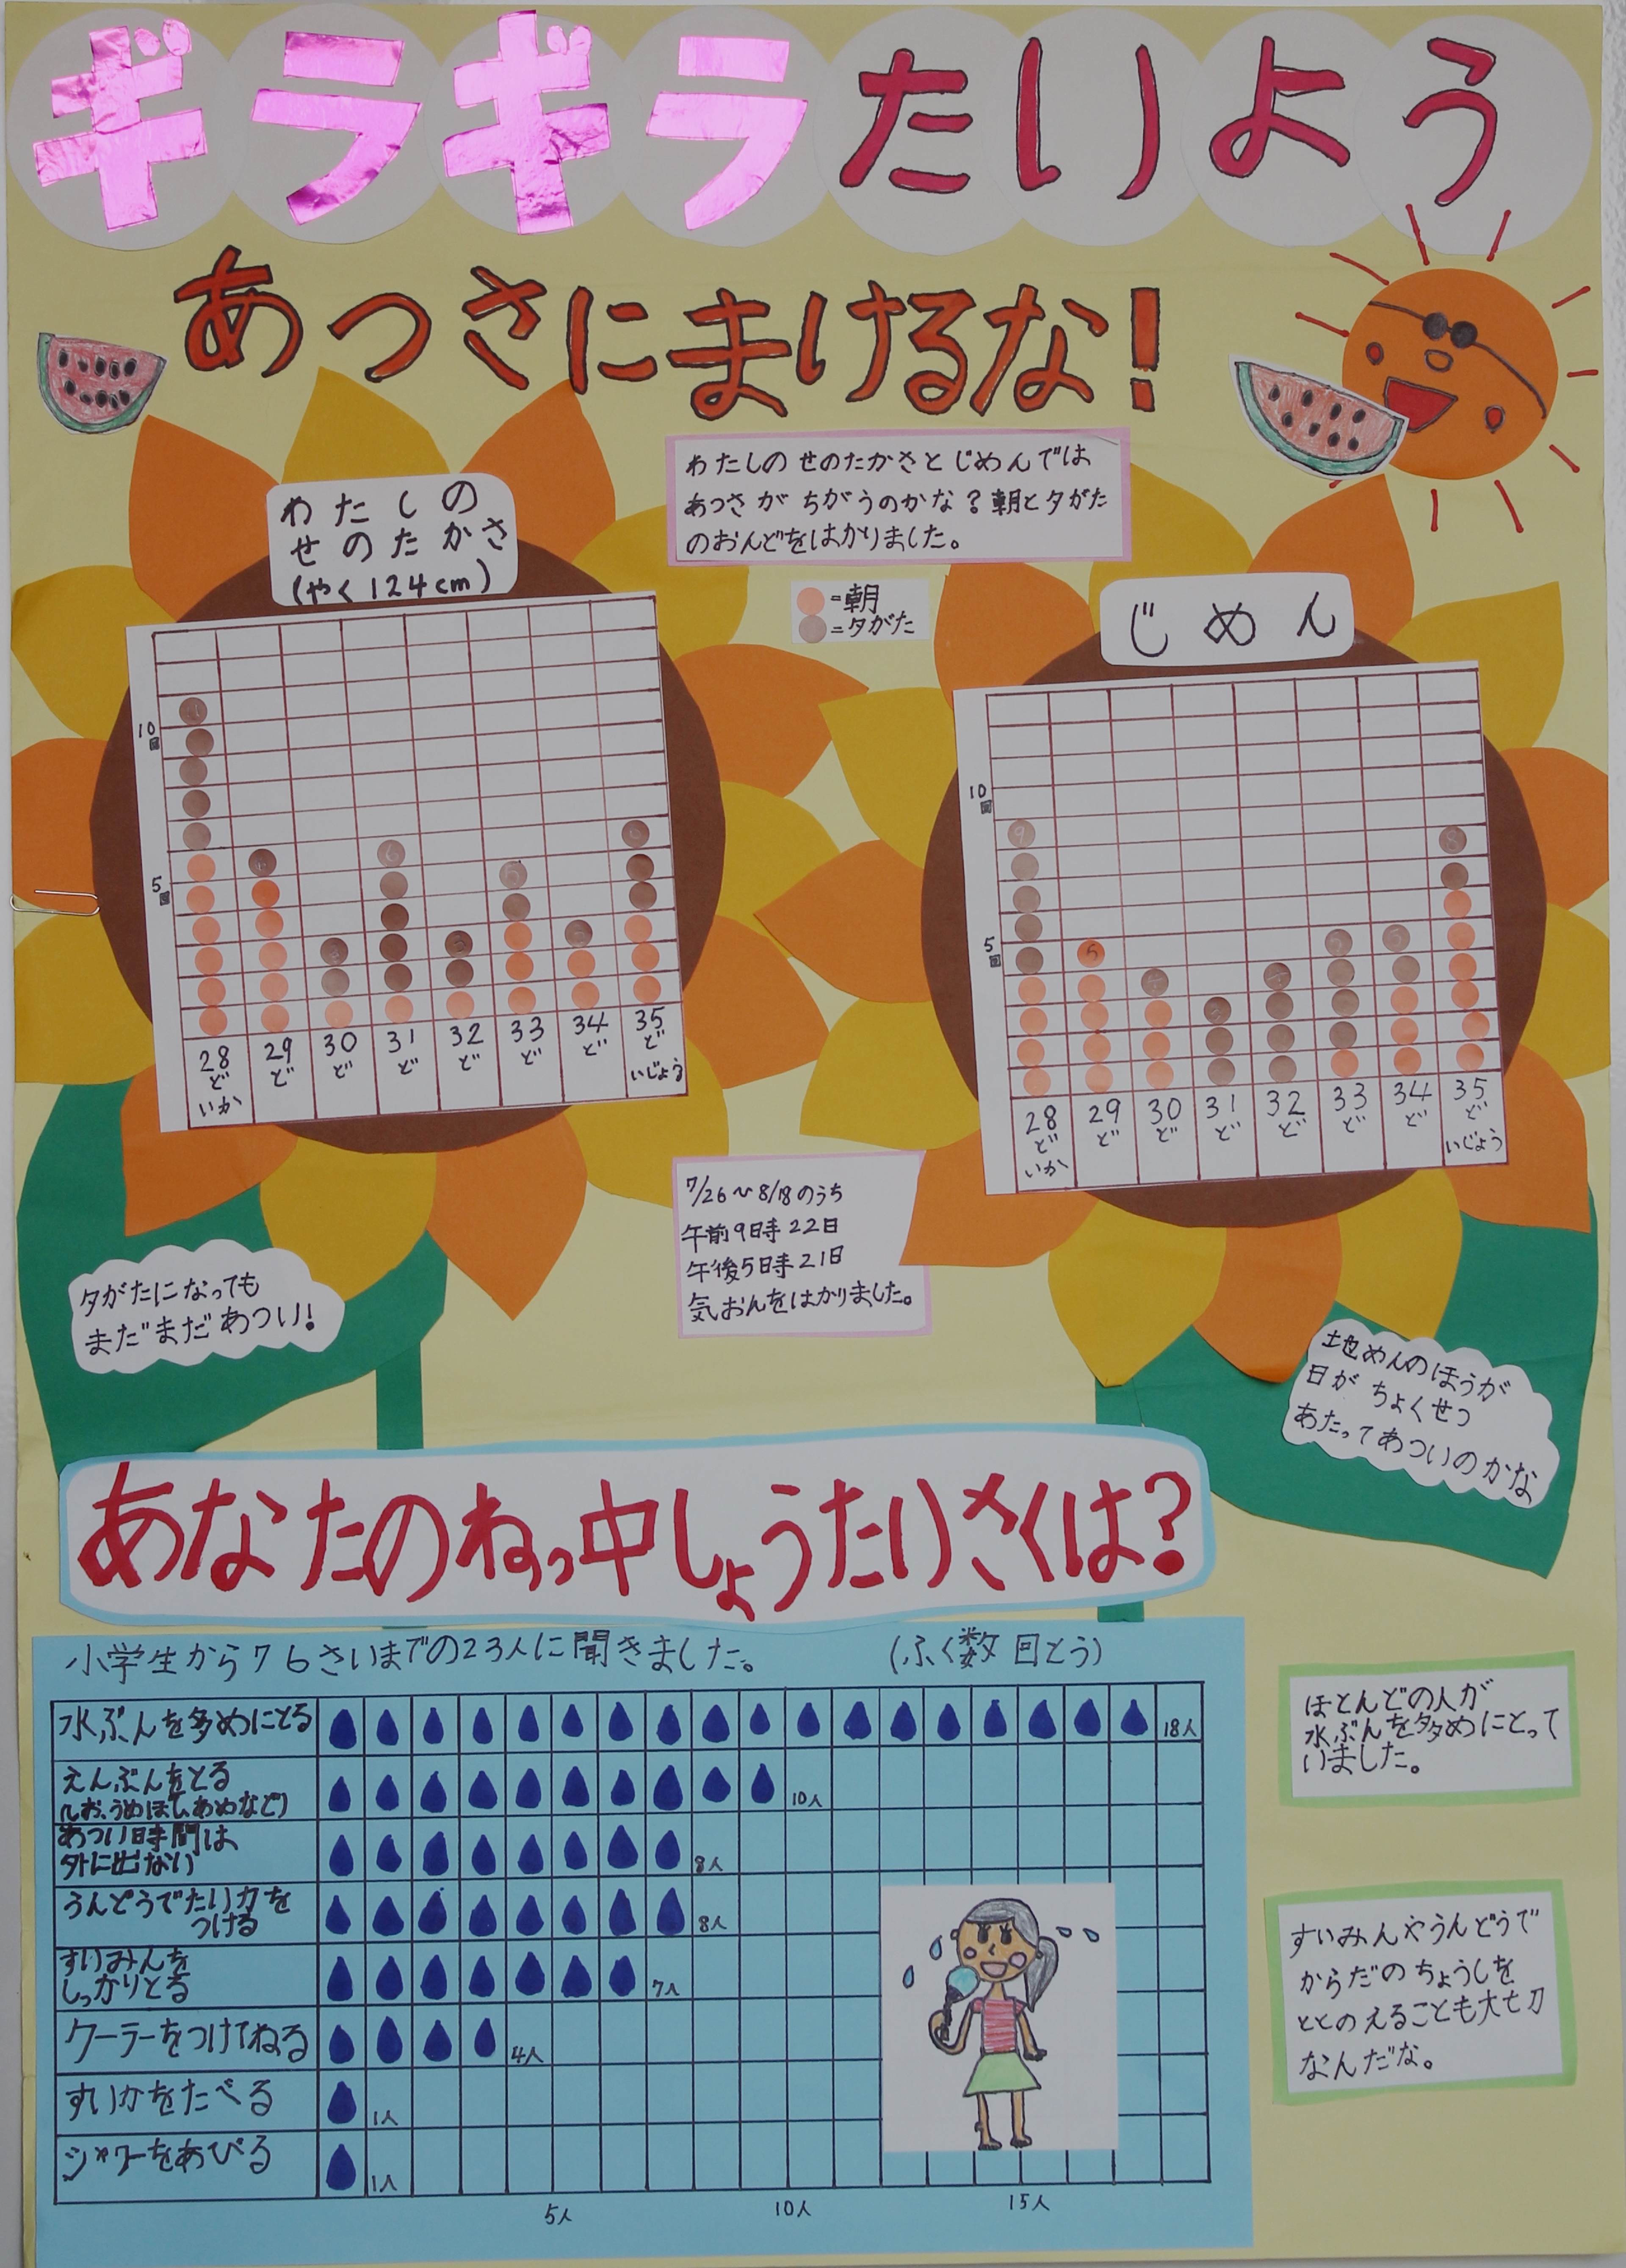 ギラギラたいよう
あっさにまけるな!
わたしの
せのたかさ
(やく124cm)
わたしのせのたかさとじめんでは
あつさがちがうのかな?朝と夕がた
のおんどをはかりました。
=朝
=夕がた
じめん
10
回
5
回
28
ど
いか
29
ど
30
ど
31
ど
32
ど
33
ど
34
ど
35
ど
いじょう
10
回
5
回
28
ど
いか
29
ど
30
ど
31
ど
32
ど
33
ど
34
ど
35
ど
いじょう
7/26~8/18のうち
午前9時22日
午後5時21日
気おんをはかりました。
夕がたになっても
まだまだあつい!
地めんのほうが
日がちょくせつ
あたってあついのかな
あなたのねっ中しょうたいさくは?
小学生から76さいまでの23人に聞きました。 (ふく数回とう)
水ぶんを多めにとる 18人
えんぶんをとる
(しお、うめほし、あめなど) 10人
あつい時間は、
外に出ない 8人
うんどうでたい力を
つける 8人
すいみんを
しっかりとる 7人
クーラーをつけてねる 4人
すいかをたべる 1人
シャワーをあびる 1人
5人 10人 15人
ほとんどの人が
水ぶんを多めにとって
いました。
すいみんやうんどうで
からだのちょうしを
ととのえることも大切
なんだな。